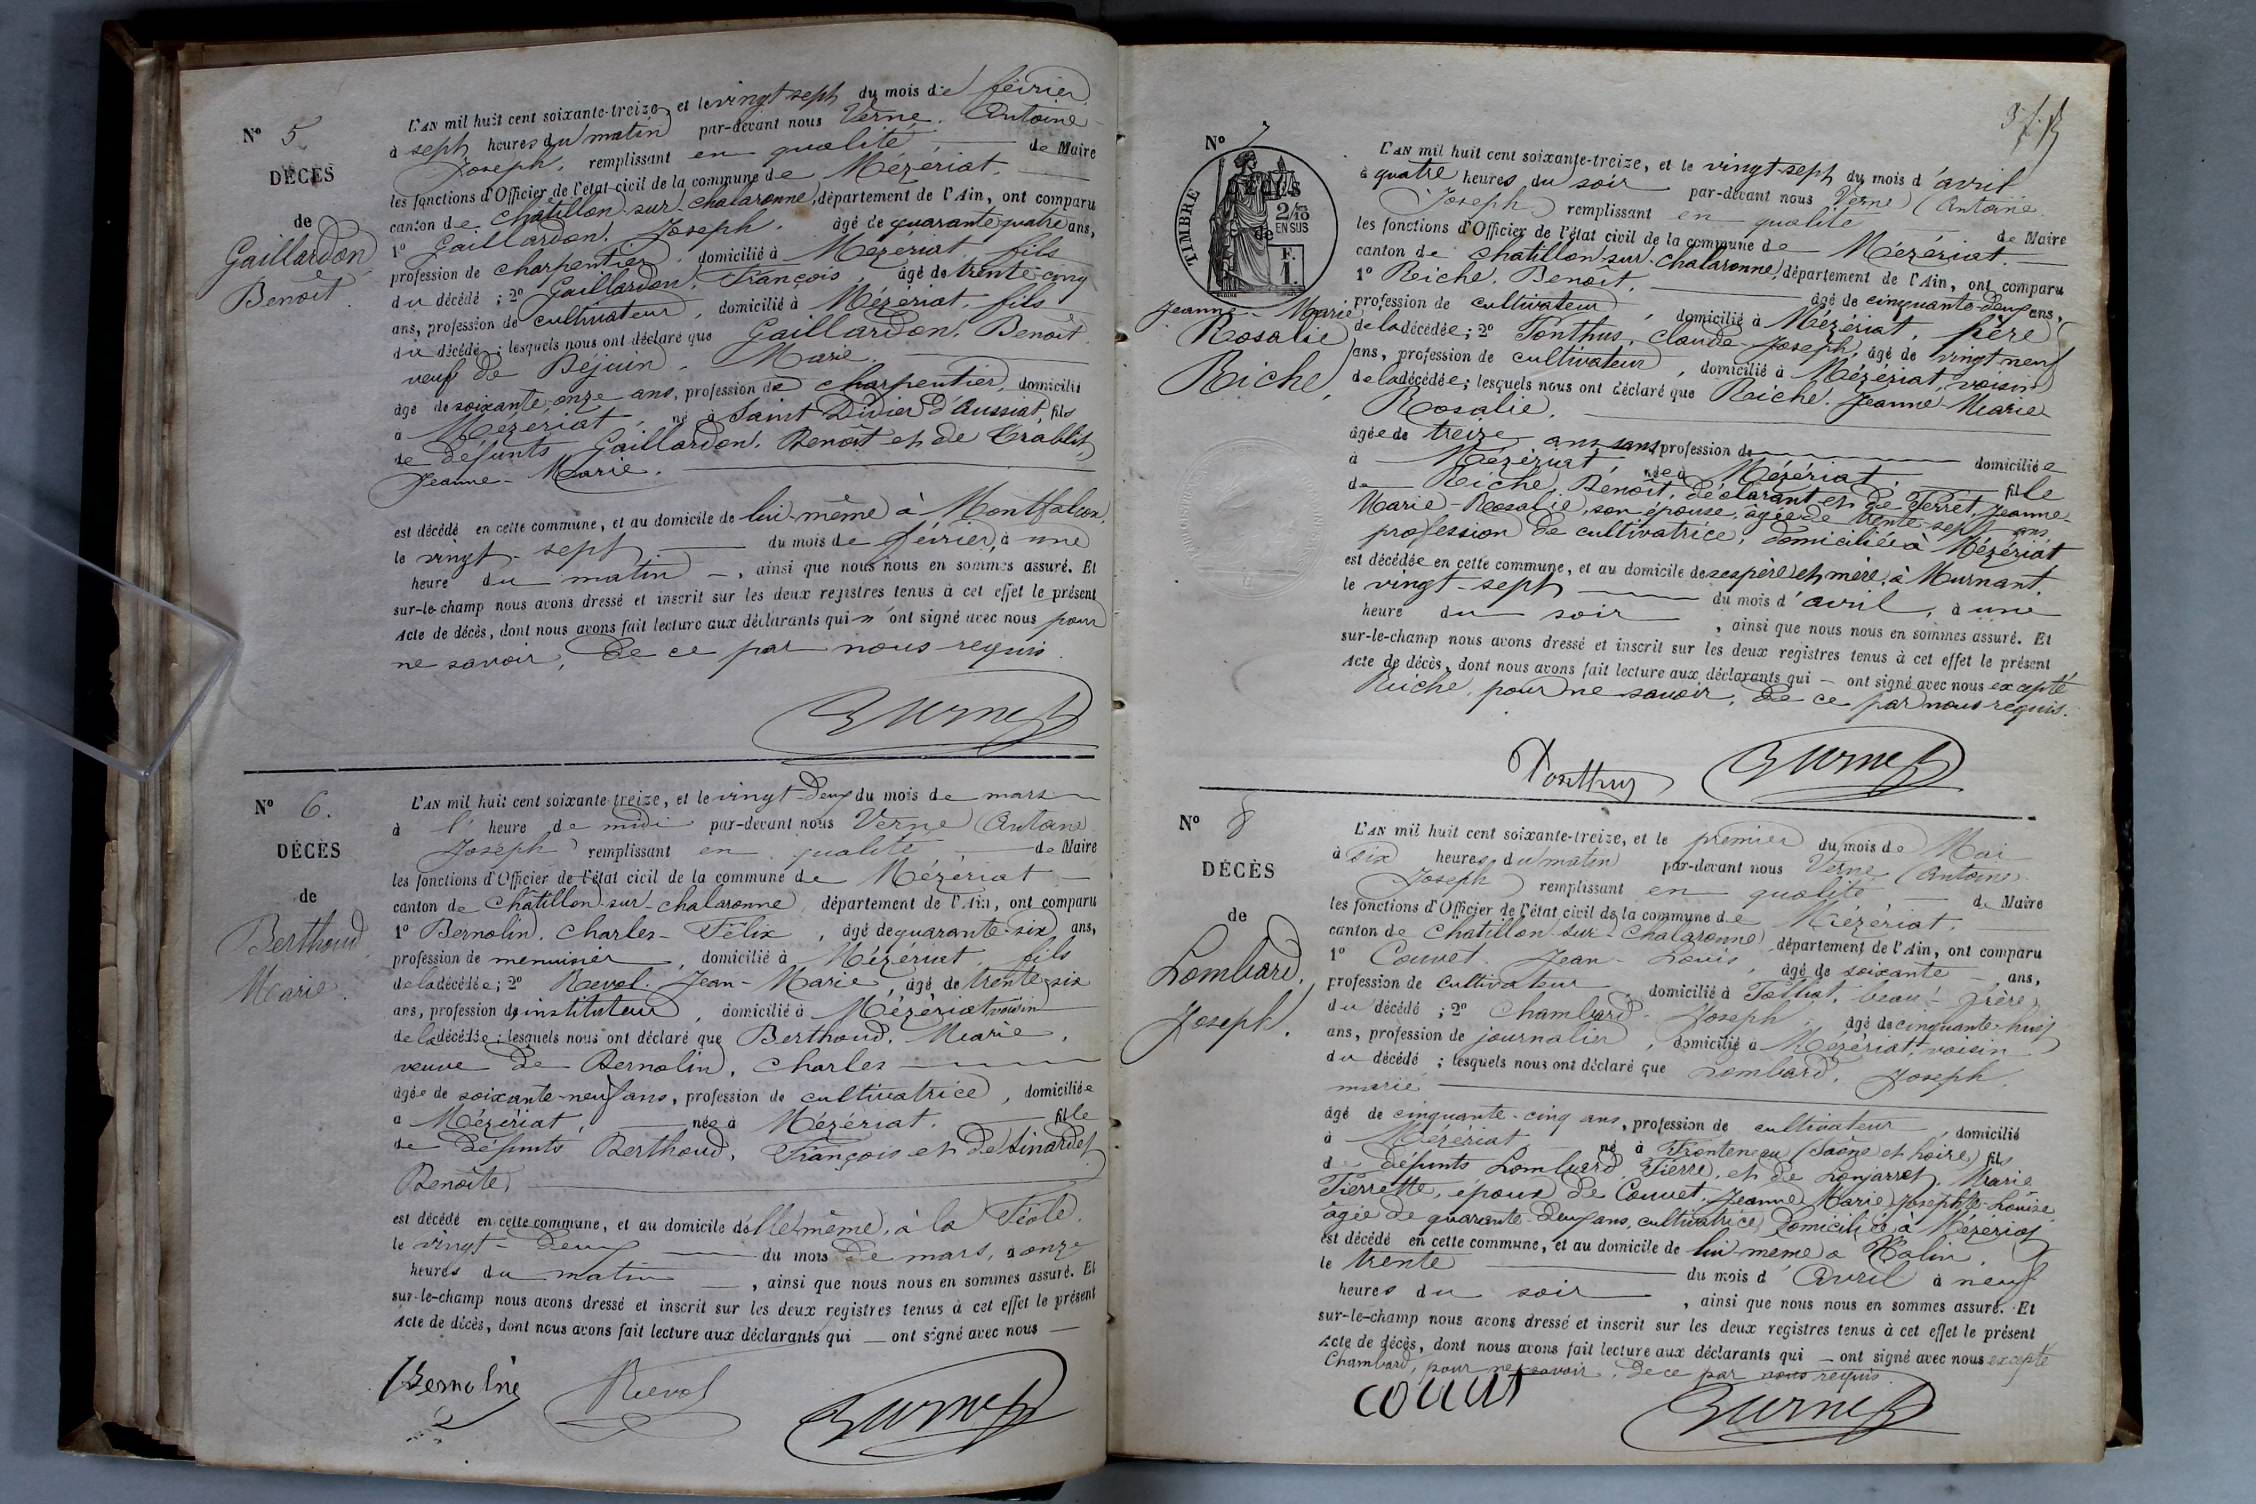 N° 5
DÉCÈS
de
Gaillardon
Benoit.
L'AN mil huit cent soixante-treize, et le vingt sept du mois de février
à sept heures du matin par-devant nous Verne. Antoine-
Joseph, remplissant en qualité de Maire
les fonctions d'Officier de l'état civil de la commune de Mézériat.
canton de Châtillon-sur-Chalaronne, département de l'Ain, ont comparu
1° Gaillardon. Joseph. âgé de quarante-quatre ans,
profession de charpentier, domicilié à Mézériat, fils
du décédé ; 2° Gaillardon. François, âgé de trente-cinq
ans, profession de cultivateur, domicilié à Mézériat, fils
du décédé ; lesquels nous ont déclaré que Gaillardon. Benoit.
veuf de Béjuin. Marie.
âgé de soixante onze ans, profession de charpentier, domicilié
à Mézériat, né à Saint Didier d'Aussiat, fils
de défunts Gaillardon. Benoît et de
Jeanne-Marie.
est décédé en cette commune, et au domicile de lui même à Montfalcon,
le vingt-sept du mois de février, à une
heure du matin, ainsi que nous nous en sommes assuré. Et
sur-le-champ nous avons dressé et inscrit sur les deux registres tenus à cet effet le présent
Acte de décès, dont nous avons fait lecture aux déclarants qui n'ont signé avec nous pour
ne savoir, de ce par nous requis.
Verne
N° 6.
DÉCÈS
de
Berthoud
Marie.
L'AN mil huit cent soixante-treize, et le vingt-deux du mois de mars
à l'heure de midi par-devant nous Verne (Antoine
Joseph) remplissant en qualité de Maire
les fonctions d'Officier de l'état civil de la commune de Mézériat
canton de Châtillon-sur-Chalaronne, département de l'Ain, ont comparu
1° Bernolin. Charles-Félix, âgé de quarante-six ans,
profession de menuisier, domicilié à Mézériat, fils
de la décédée ; 2° Revol. Jean-Marie, âgé de trente-six
ans, profession d'instituteur, domicilié à Mézériat voisin
de la décédée ; lesquels nous ont déclaré que Berthoud. Marie,
veuve de Bernolin, Charles
âgée de soixante-neuf ans, profession de cultivatrice, domiciliée
à Mézériat, née à Mézériat. fille
de défunts Berthoud, François et de Sinardet
Benoîte,
est décédé en cette commune, et au domicile d'elle même, à la Féole,
le vingt-deux du mois de mars, à onze
heures du matin, ainsi que nous nous en sommes assuré. Et
sur-le-champ nous avons dressé et inscrit sur les deux registres tenus à cet effet le présent
Acte de décès, dont nous avons fait lecture aux déclarants qui — ont signé avec nous —
Bernolin Revol Verne
N° 7
TIMBRE
2/10
EN SUS
F.
1.
de
Jeanne-Marie
Rosalie
Riche,
L'AN mil huit cent soixante-treize, et le vingt-sept du mois d'avril
à quatre heures du soir par-devant nous Verne (Antoine
Joseph) remplissant en qualité de Maire
les fonctions d'Officier de l'état civil de la commune de Mézériat.
canton de Châtillon-sur-Chalaronne, département de l'Ain, ont comparu
1° Riche. Benoît. âgé de cinquante-deux ans,
profession de cultivateur, domicilié à Mézériat, père
de la décédée ; 2° Ponthus, Claude-Joseph, âgé de vingt neuf
ans, profession de cultivateur, domicilié à Mézériat, voisin
de la décédée ; lesquels nous ont déclaré que Riche. Jeanne-Marie
Rosalie.
âgée de treize ans, sans profession de domiciliée
à Mézériat, née à Mézériat, fille
de Riche Benoît, déclarant et de Perret, Jeanne-
Marie-Rosalie, son épouse, âgée de trente-sept ans,
profession de cultivatrice, domiciliée à Mézériat
est décédée en cette commune, et au domicile de ses père et mère, à Murnant,
le vingt-sept du mois d'avril, à une
heure du soir, ainsi que nous nous en sommes assuré. Et
sur-le-champ nous avons dressé et inscrit sur les deux registres tenus à cet effet le présent
Acte de décès, dont nous avons fait lecture aux déclarants qui — ont signé avec nous excepté
Riche, pour ne savoir, de ce par nous requis.
Ponthus Verne
N° 8
DÉCÈS
de
Lombard,
Joseph.
L'AN mil huit cent soixante-treize, et le premier du mois de Mai
à six heures du matin par-devant nous Verne (Antoine
Joseph) remplissant en qualité de Maire
les fonctions d'Officier de l'état civil de la commune de Mézériat.
canton de Châtillon-sur-Chalaronne, département de l'Ain, ont comparu
1° Couvet. Jean-Louis, âgé de soixante ans,
profession de cultivateur, domicilié à Polliat, beau-frère
du décédé ; 2° Chambard. Joseph, âgé de cinquante-huit
ans, profession de journalier, domicilié à Mézériat, voisin
du décédé ; lesquels nous ont déclaré que Lombard. Joseph.
marié
âgé de cinquante-cinq ans, profession de cultivateur, domicilié
à Mézériat né à Frontenaud (Saône et Loire) fils
de défunts Lombard, Pierre, et de Lonjarret, Marie
Pierrette, époux de Couvet. Jeanne Marie Josephte-Louise
âgée de quarante-deux ans, cultivatrice, domiciliée à Mézériat
est décédé en cette commune, et au domicile de lui même à
le trente du mois d'Avril à neuf
heures du soir, ainsi que nous nous en sommes assuré. Et
sur-le-champ nous avons dressé et inscrit sur les deux registres tenus à cet effet le présent
Acte de décès, dont nous avons fait lecture aux déclarants qui — ont signé avec nous excepté
Chambard, pour ne savoir, de ce par nous requis.
Couvet Verne